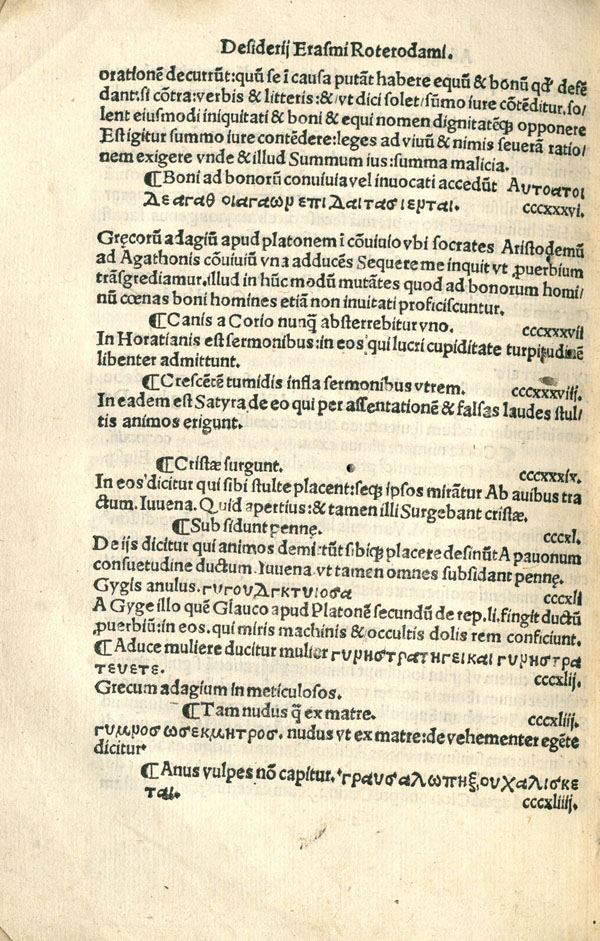 Desiderij Erasmi Roterodami.
orationē decurrūt:quū se ī causa putāt habere equū & bonū qđ defē
dant.si cōtra:verbis & litteris:& vt dici solet/sūmo iure cōtēditur.so/
lent eiusmodi iniquitati & boni & equi nomen dignitatēq̃ opponere
Est igitur summo iure contēdere:leges ad viuū & nimis seuerā ratio/
nem exigere vnde & illud Summum ius:summa malicia.
¶Boni ad bonorū conuiuia vel inuocati accedūt Αυτοατοι
Δεαγαθ οιαγαωρεπι Δαιτασιερται. cccxxxvi.
Gręcorū adagiū apud platonem ī cōuiuio vbi socrates Aristodemū
ad Agathonis cōuiuiū vna adducēs Sequere me inquit vt ꝓuerbium
trāsgrediamur.illud in hūc modū mutātes quod ad bonorum homi/
nū cœnas boni homines etiā non inuitati proficiscuntur.
¶Canis a Corio nunq̃ absterrebitur vno. cccxxxvii
In Horatianis est sermonibus:in eos qui lucri cupiditate turpitudinē
libenter admittunt.
¶Crescētē tumidis infla sermonibus vtrem. cccxxxviij.
In eadem est Satyra de eo qui per assentationē & falsas laudes stul/
tis animos erigunt.
¶Cristæ surgunt. cccxxxix.
In eos dicitur qui sibi stulte placent:seq̃ ipsos mirātur Ab auibus tra
ctum. Iuuena. Quid apertius:& tamen illi Surgebant cristæ.
¶Subsidunt pennę. cccxl.
De ijs dicitur qui animos demittūt sibiq̃ placere desinūt A pauonum
consuetudine ductum. Iuuena vt tamen omnes subsidant pennę.
Gygis anulus. γυγουΔγκτυιοσα cccxli
A Gyge illo quē Glauco apud Platonē secundū de rep.li.fingit ductū
ꝓuerbiū:in eos.qui miris machinis & occultis dolis rem conficiunt.
¶A duce muliere ducitur mulier γυρηστρατηγεικαι γυρηστρα
τευετε. cccxlij.
Grecum adagium in meticulosos.
¶Tam nudus q̃ ex matre. cccxliij.
γυμροσωσεκμητροσ. nudus vt ex matre:de vehementer egēte
dicitur
¶Anus vulpes nō capitur. γραυσαλωπηξ,ουχαλισκε
ται. cccxliiij.